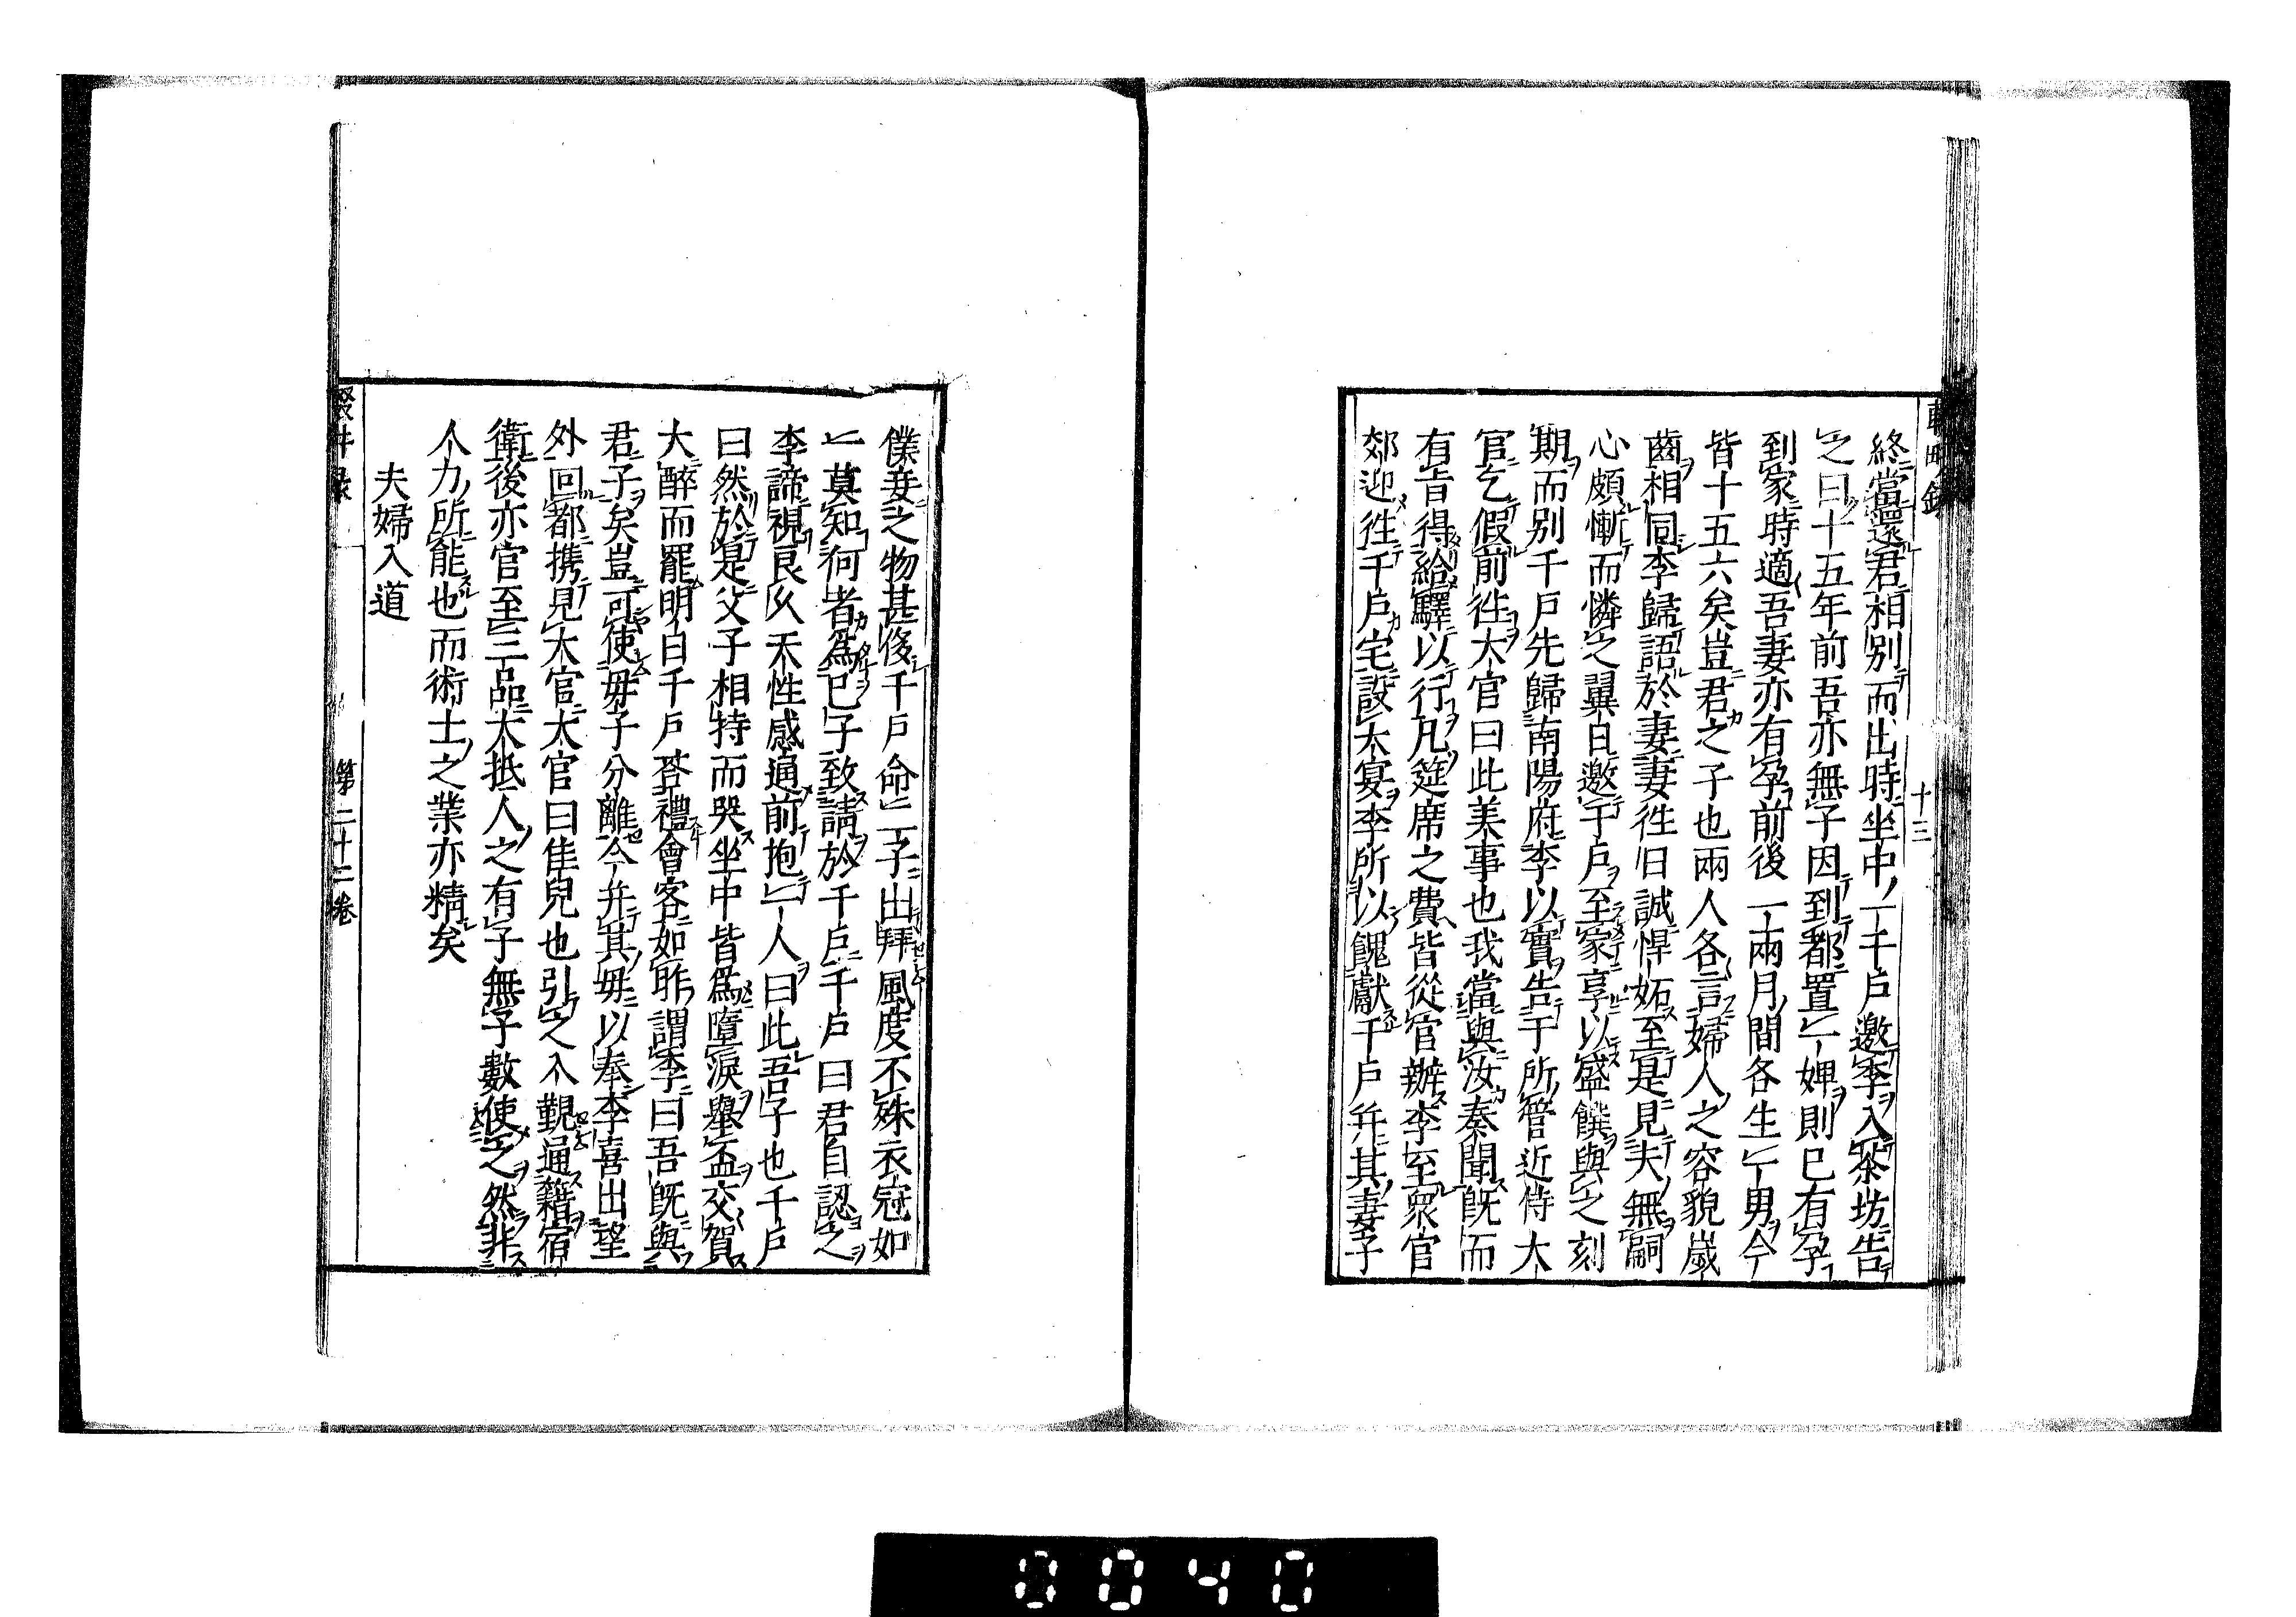 終當還君相別而出時坐中一千戶邀李入茶坊告
之曰十五年前吾亦無子因到都置一婢則已有孕
到家時適吾妻亦有孕前後一兩月間各生一男今
皆十五六矣豈君之子也兩人各言婦人之容貌歲
齒相同李歸語於妻妻徃日誠悍妬至是見夫無嗣
心頗慚而憐之翼日邀千戶至家享以盛饌與之刻
期而別千戶先歸南陽府李以實告于所管近侍大
官乞假前徃大官曰此美事也我當與汝奏聞既而
有旨得給驛以行凡筵席之費皆從官辦李至衆官
郊迎徃千戶宅設大宴李所以餽獻千戶幷其妻子
十三
僕妾之物甚侈千戶命二子出拜風度不殊衣冠如
一莫知何者爲已子致請於千戶千戶曰君自認之
李諦視良久天性感通前抱一人曰此吾子也千戶
曰然於是父子相持而哭坐中皆爲墮淚舉盃交賀
大醉而罷明日千戶荅禮會客如昨謂李曰吾既與
君子矣豈可使毋子分離今幷其毋以奉李喜出望
外回都携見大官大官曰佳兒也引之入覲通籍宿
衛後亦官至三品大抵人之有子無子數使之然非
人力所能也而術士之業亦精矣
夫婦入道
輟畊錄
第二十二卷
0040